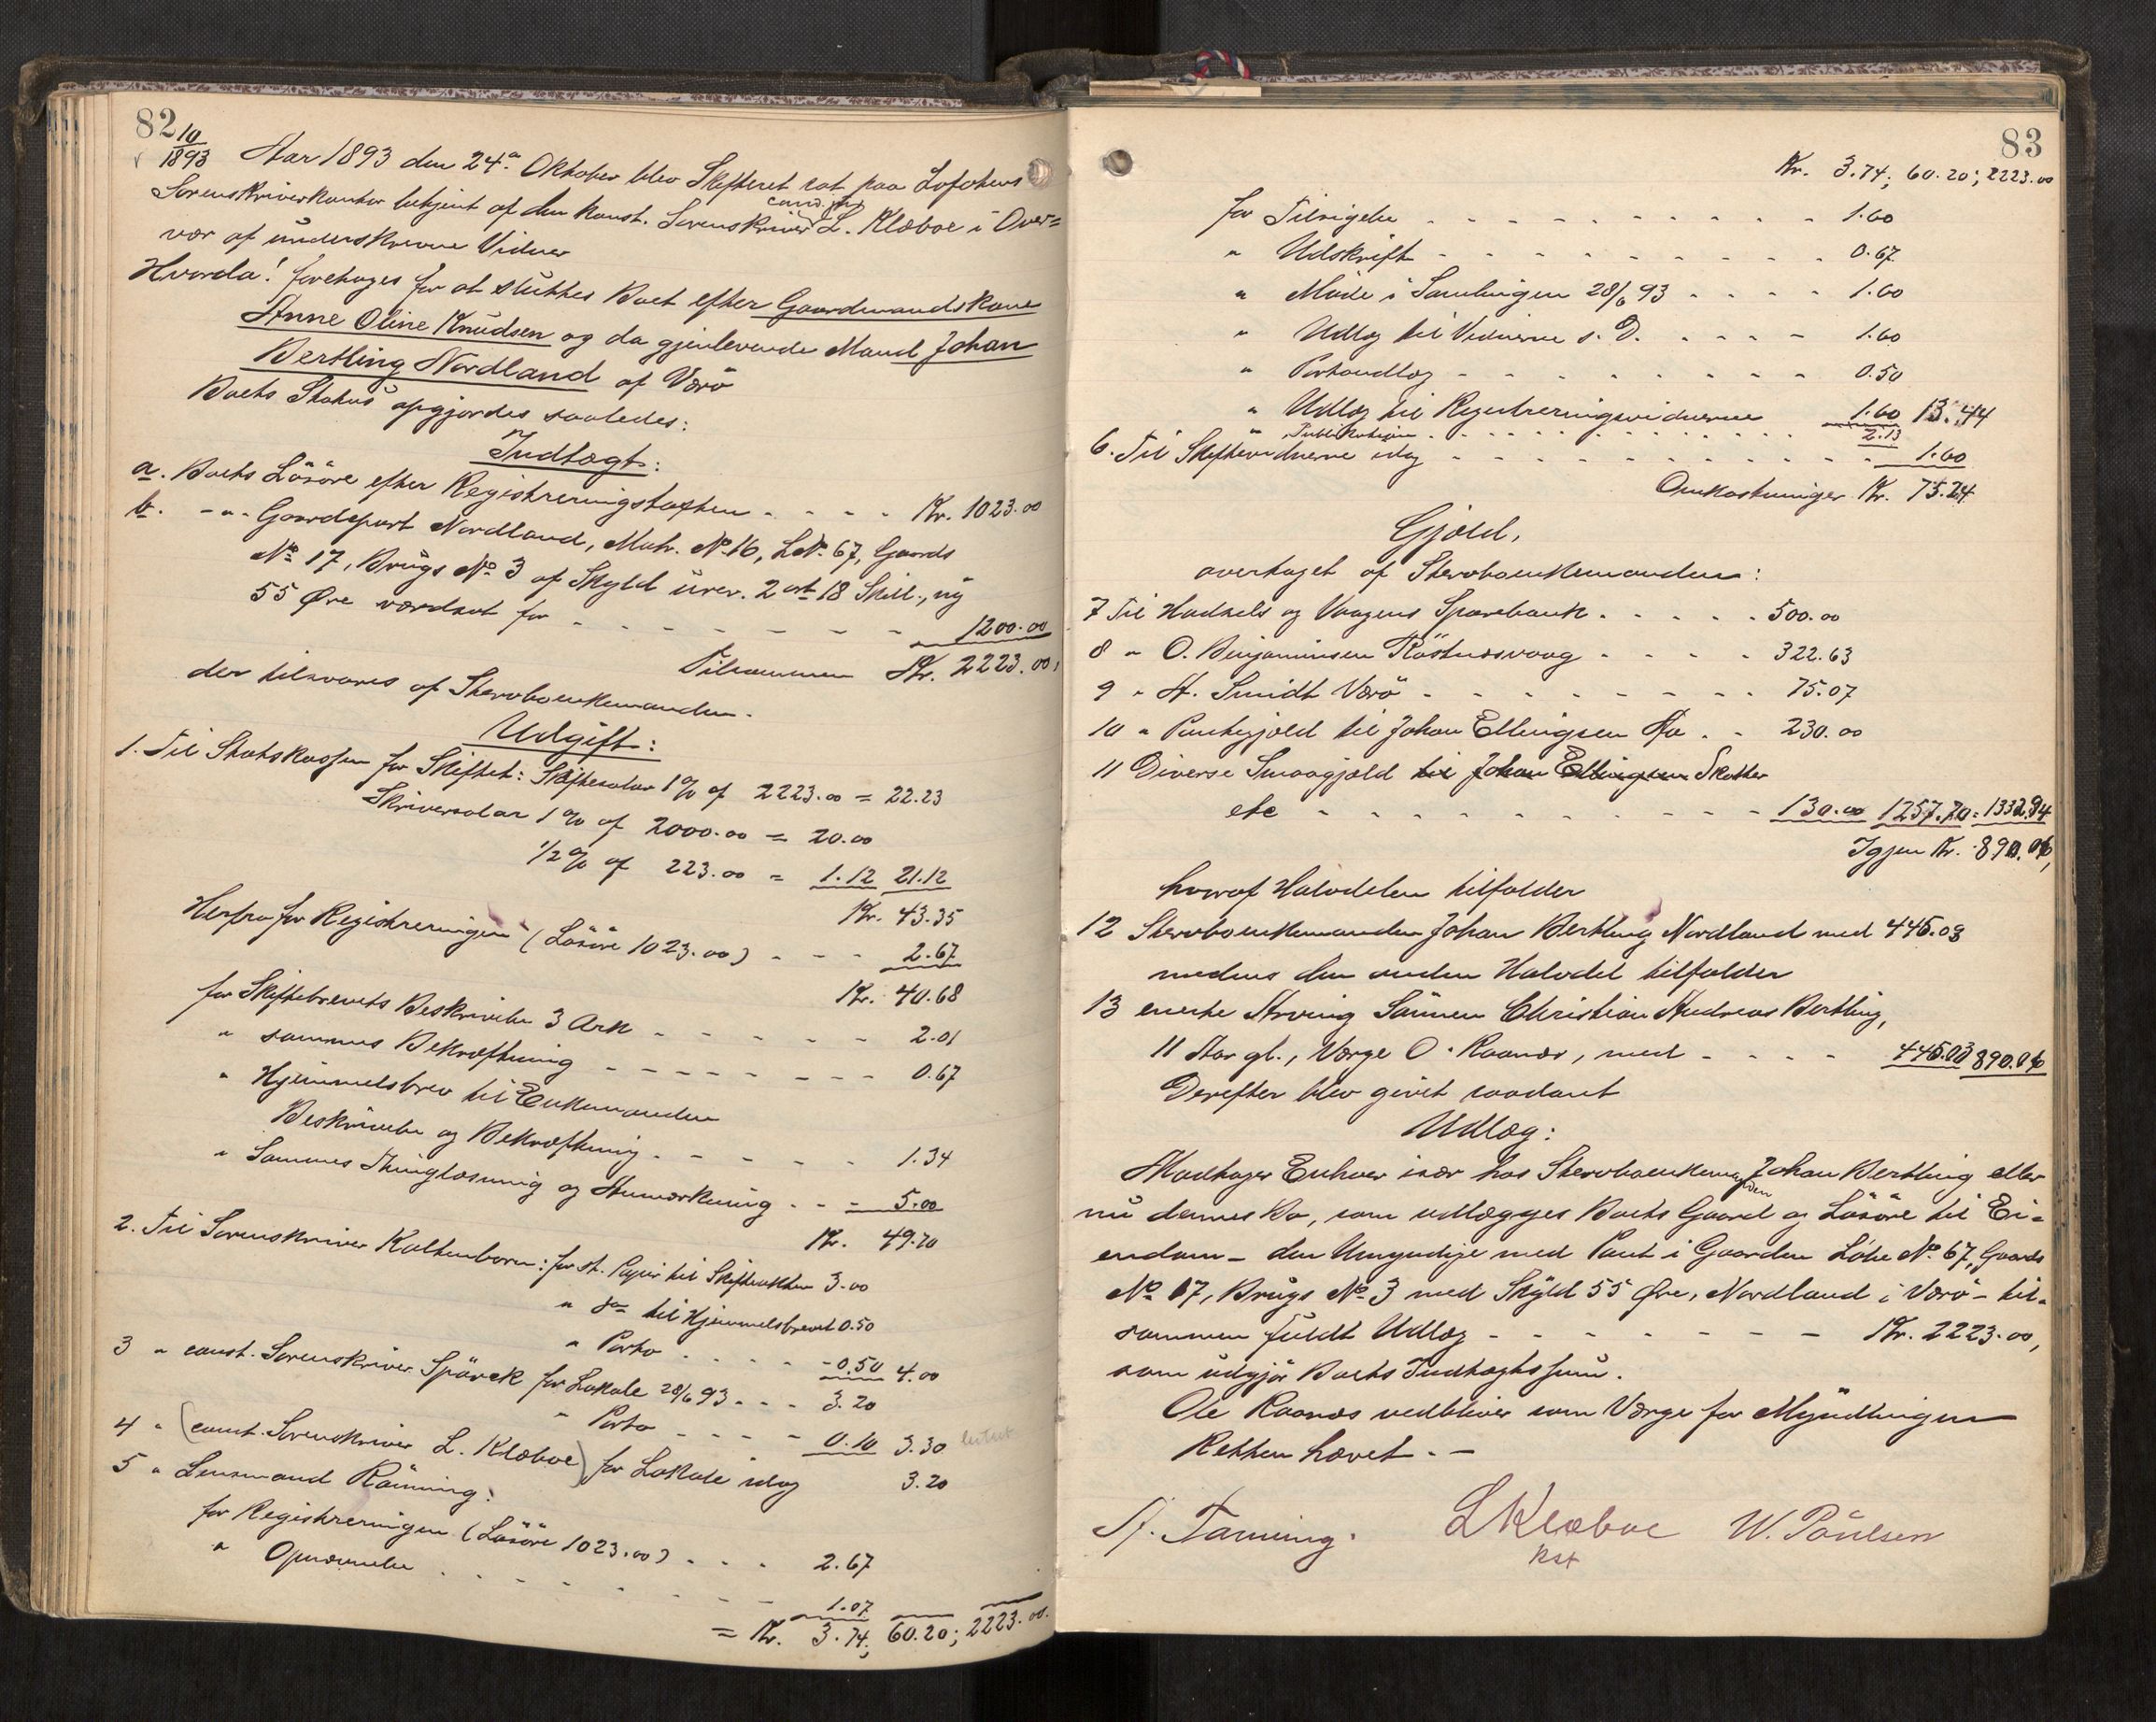 82
10/1893 Aar 1893 den 24de Oktober blev Skifteret sat paa Lofotens
Sorenskriverkontor betjent af den konst. Sorenskriver cand. jur. L. Klæboe i Over=
vær af underskrevne Vidner
Hvorda! foretoges for at sluttes Boet efter Gaardmandskone
Anne Oline Knudsen og da gjenlevende Mand Johan
Bertling Nordland af Værö
Boets Status opgjordes saaledes:
Indtægt:
a. Boets Lösöre efter Registreringstaxten - - - - Kr. 1023.00
b. -"- Gaardpart Nordland, Matr. No 16, L.No 67, Gaards
No 17, Brugs No 3 af Skyld urev. 2 ort 18 Skill., ny
55 Øre værdsat for - - - - - - - 1200.00
Tilsammen Kr. 2223.00,
der tilsvares af Stervboenkemanden.
Udgift:
1. Til Statskassen for Skiftet: Skiftesalær 1% af 2223.00 = 22.23
Skriversalær 1% af 2000.00 = 20.00
1/2% af 223.00 = 1.12 21.12
Kr. 43.35
Herfra for Registreringen (Lösöre 1023.00) - - - 2.67
Kr. 40.68
for Skiftebrevets Beskrivelse 3 Ark - - - - - 2.01
" sammes Bekræftning - - - - - - - - 0.67
" Hjemmelsbrev til Enkemanden
Beskrivelse og Bekræftning - - - - - 1.34
" Sammes Thinglæsning og Anmærkning - - - 5.00
Kr. 49.70
2. Til Sorenskriver Kaltenborn: for st. Papir til Skifteakten 3.00
" do til Hjemmelsbrevet 0.50
" Porto - - - - - 0.50 4.00
3 " const. Sorenskriver Spörck for Lokale 28/6 93 - - - 3.20
" Porto - - - - 0.10 3.30
4 " (const. Sorenskriver L. Klæboe) for Lokale idag 3.20
5 " Lensmand Rönning:
for Registreringen (Lösöre 1023.00) - - - 2.67
" Opnævnelse - - - - - - - - 1.07
= Kr. 3.74; 60.20; 2223.00.
83
Kr. 3.74; 60.20; 2223.00
for Tilsigelse - - - - - - - - - - 1.60
" Udskrift - - - - - - - - - 0.67
" Möde i Samlingen 28/6 93 - - - - 1.60
" Udlæg til Vidnerne s. D. - - - - 1.60
" Portoudlæg - - - - - - - - - 0.50
" Udlæg til Registreringsvidnerne 1.60 13.44
" Publikation - - - - - - - - - - - 2.13
6. Til Skiftevidnerne idag - - - - - - - - - - - 1.60
Omkostninger Kr. 75.24
Gjæld,
overtaget af Stervboenkemanden:
7 Til Hadsels og Vaagens Sparebank - - - - - 500.00
8 " O. Benjaminsen Röstnesvaag - - - - 322.63
9 " A. Smidt Værö - - - - - - - - - 75.07
10 " Pantegjæld til Johan Ellingsen Aa - - 230.00
11 Diverse Smaagjæld til Johan Ellingsen Skatter
etc - - - - - - - - - - - - 130.00 1257.70 = 1332.94
Igjen Kr. 890.06,
hvoraf Halvdelen tilfalder
12 Stervboenkemanden Johan Bertling Nordland med 445.03
medens den anden Halvdel tilfalder
13 eneste Arving Sönnen Christian Andreas Bertling,
11 Aar gl., Værge O. Raanæs, med - - - - 445.03 890.06
Derefter blev givet saadant
Udlæg:
Modtager Enhver især hos Stervboenkemanden Johan Bertling eller
nu dennes Bo, som udlægges Boets Gaard og Lösöre til Ei=
endom - den Umyndige med Pant i Gaarden Löbe No. 67, Gaards
No 17, Brugs No 3 med Skyld 55 Øre, Nordland i Værö - til=
sammen fuldt Udlæg - - - - - - - - Kr. 2223.00,
som udgjör Boets Indtægtssum.
Ole Raanæs vedbliver som Værge for Myndlingen
Retten hævet. -
L Klæboe W. Paulsen
Kst